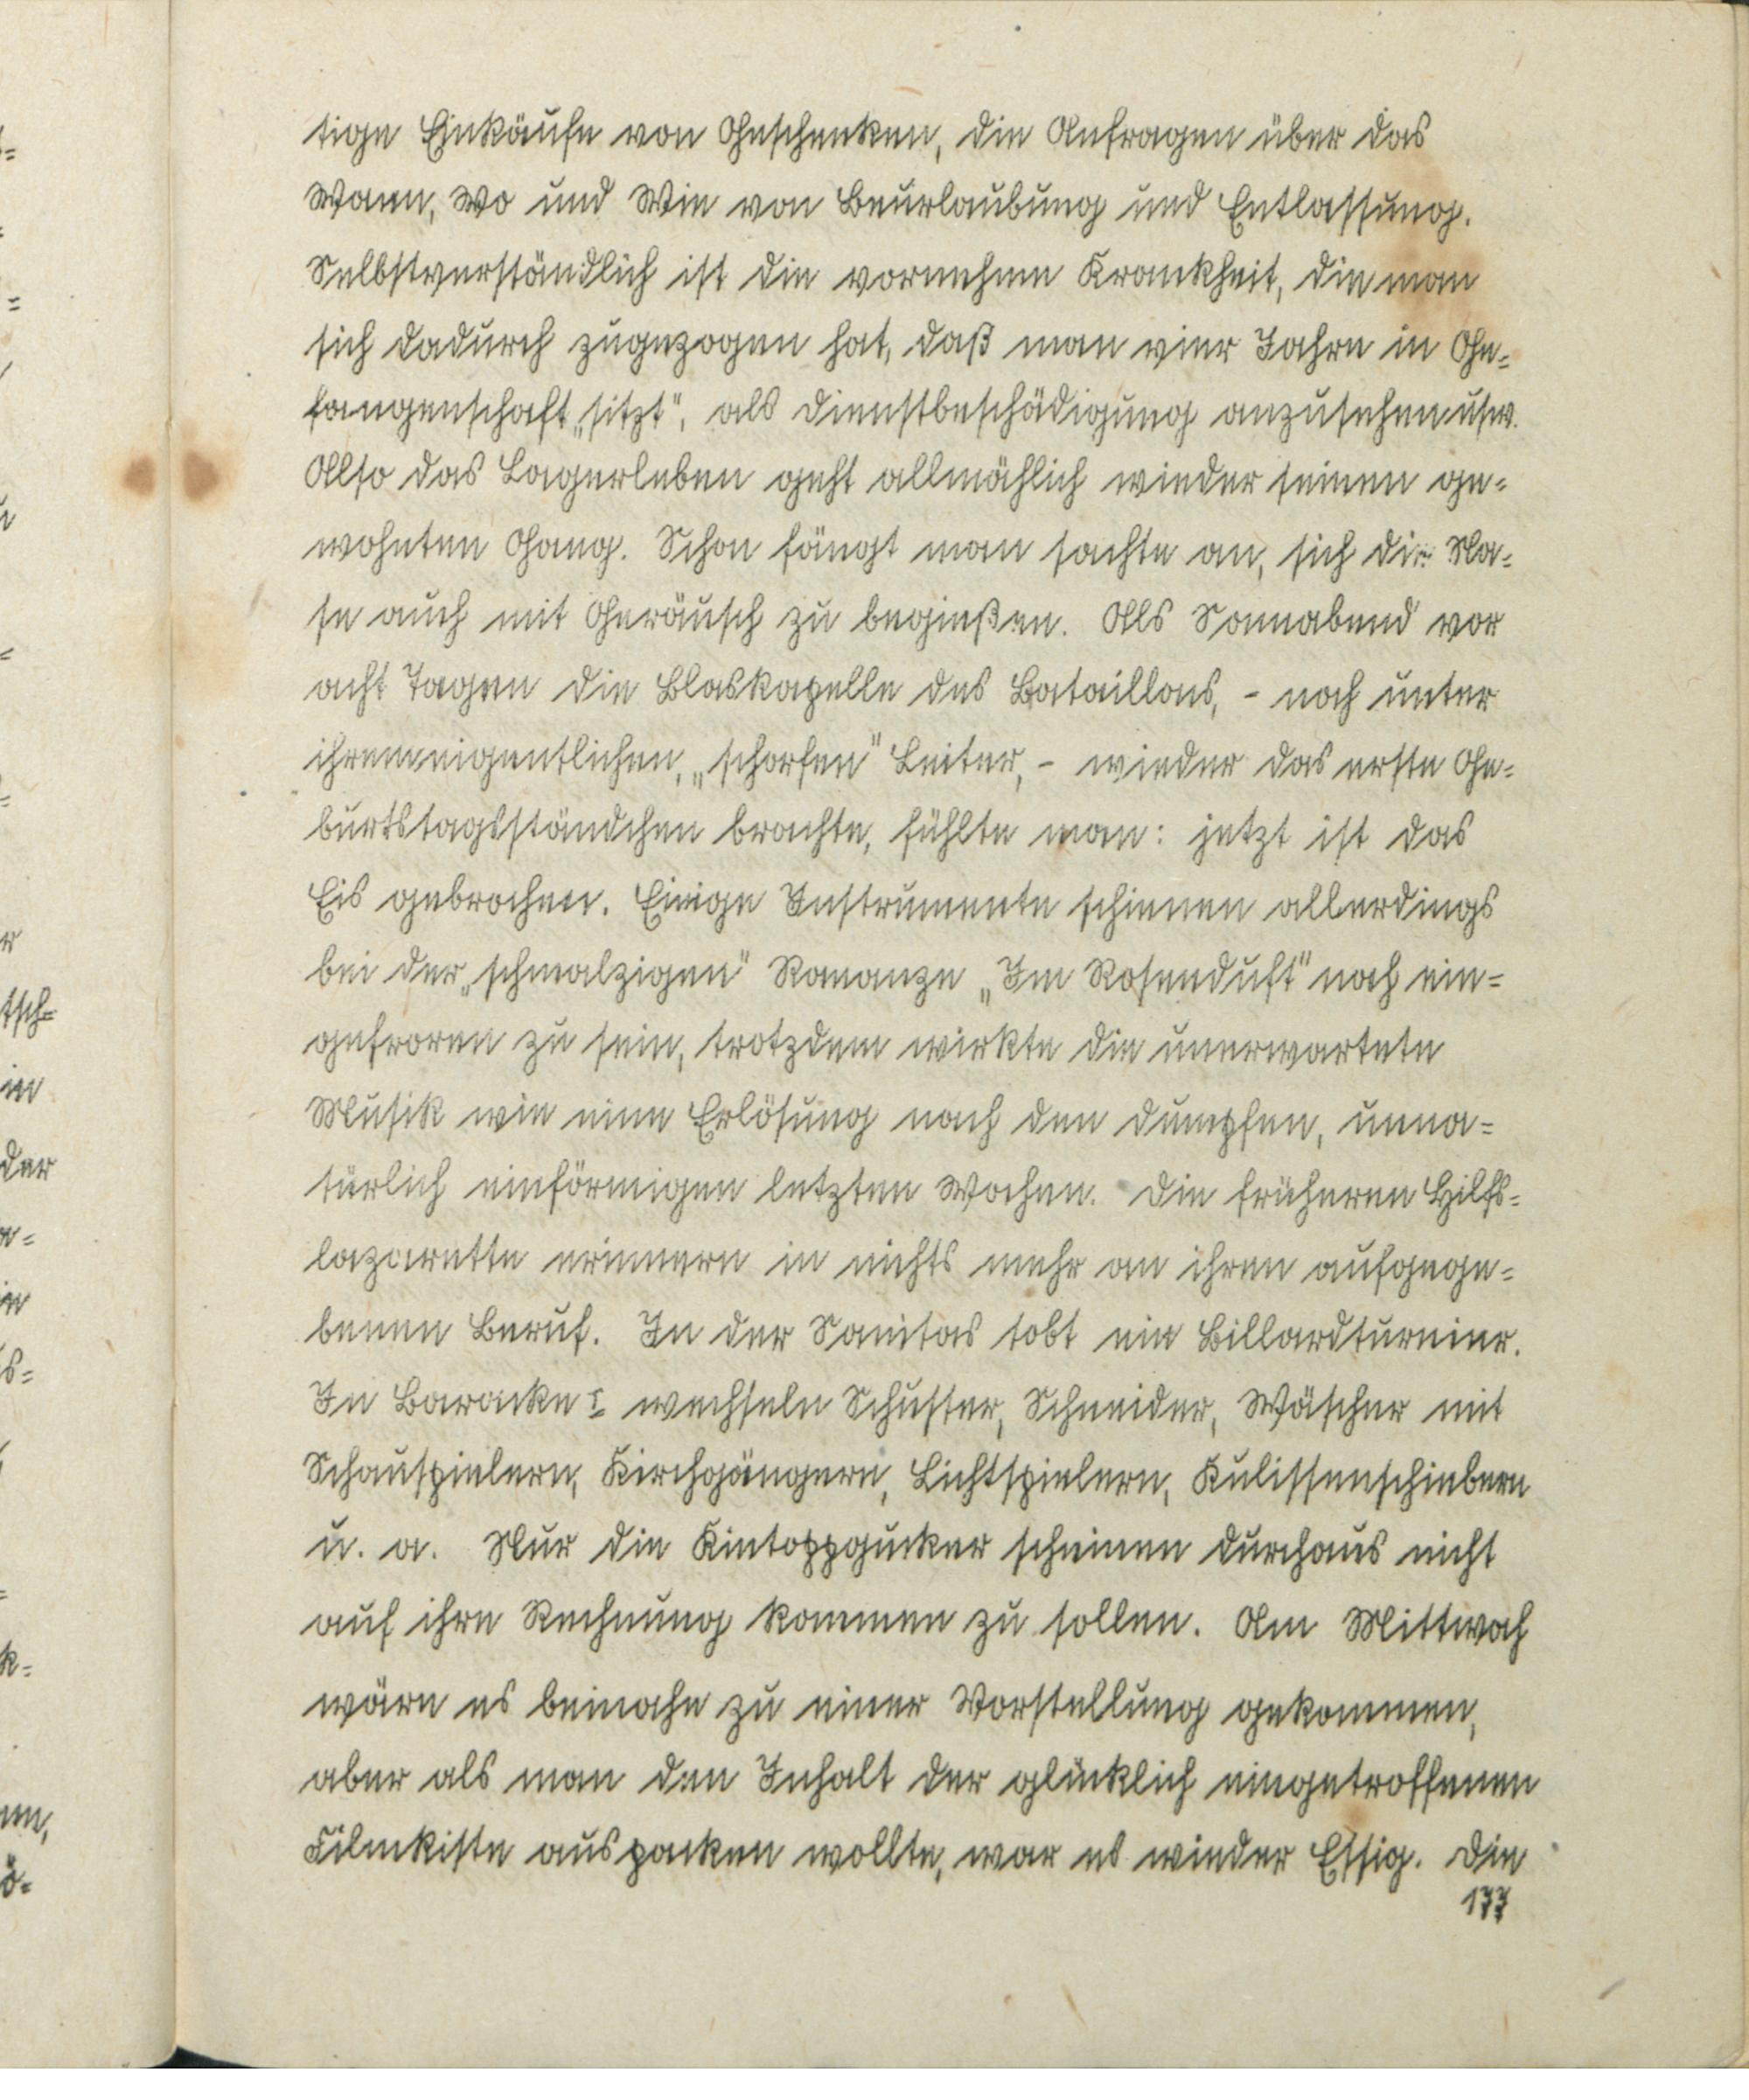 tige Einkäufe von Geschenken, die Anfragen über das
Wann, Wo und Wie von Beurlaubung und Entlassung.
Selbstverständlich ist die vornehme Krankheit, die man
sich dadurch zugezogen hat, daß man vier Jahre in Ge=
fangenschaft „sitzt", als Dienstbeschädigung anzusehen usw.
Also das Lagerleben geht allmählich wieder seinen ge=
wohnten Gang. Schon fängt man sachte an, sich die Na=
se auch mit Geräusch zu begießen. Als Sonnabend vor
acht Tagen die Blaskapelle des Bataillons, - noch unter
ihrem eigentlichen, „scharfen" Leiter, - wieder das erste Ge=
burtstagsständchen brachte, fühlte man: jetzt ist das
Eis gebrochen. Einige Instrumente schienen allerdings
bei der „schmalzigen" Romanze „Im Rosenduft" noch ein=
gefroren zu sein, trotzdem wirkte die unerwartete
Musik wie eine Erlösung nach den dumpfen, unna=
türlich einförmigen letzten Wochen. Die früheren Hilfs=
lazarette erinnern in nichts mehr an ihren aufgege=
benen Beruf. In der Sanitas tobt ein Billardturnier.
In Baracke I wechseln Schuster, Schneider, Wäscher mit
Schauspielern, Kirchgängern, Lichtspielern, Kulissenschiebern
u. a. Nur die Kintoppgucker scheinen durchaus nicht
auf ihre Rechnung kommen zu sollen. Am Mittwoch
wäre es beinahe zu einer Vorstellung gekommen,
aber als man den Inhalt der glücklich eingetroffenen
Filmkiste auspacken wollte, war es wieder Essig. Die
177